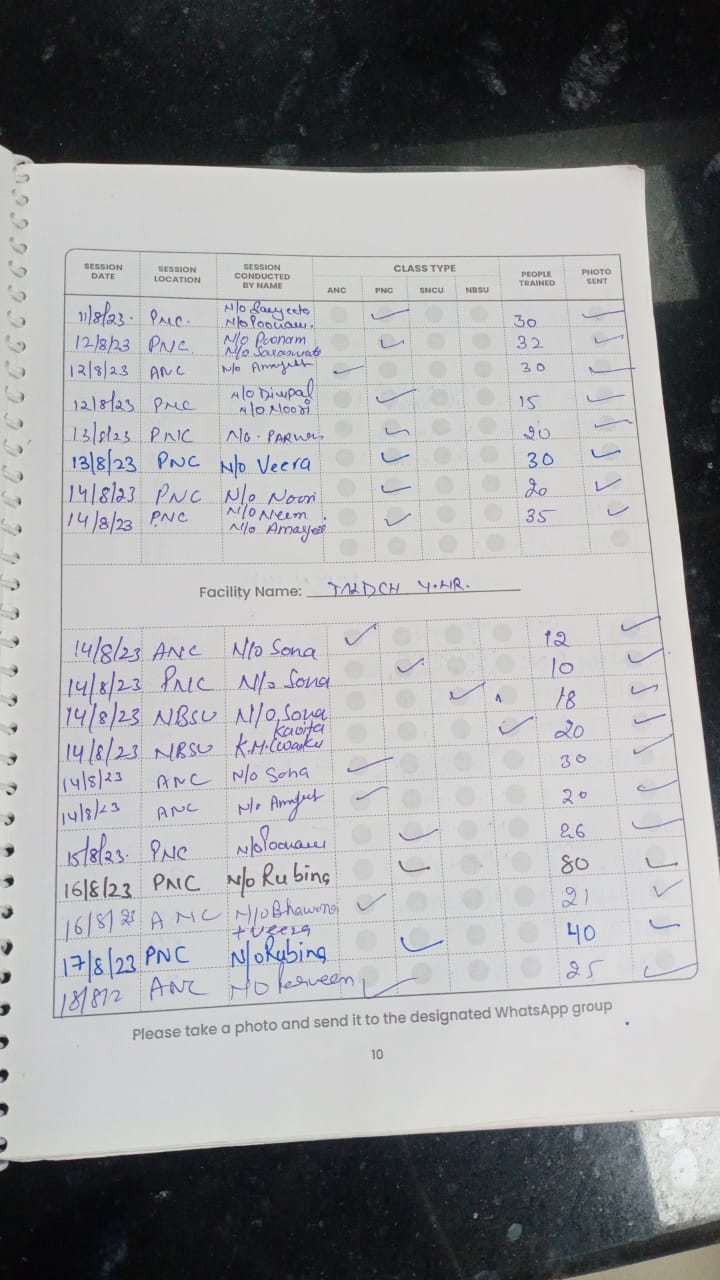 SESSION DATE SESSION LOCATION SESSION CONDUCTED BY NAME CLASS TYPE PEOPLE TRAINED PHOTO SENT
ANC PNC SNCU NBSU
11/8/23. PNC. N/O 30
N/O Poonam.
12/8/23 PNC N/O Poonam 32
N/O
12/8/23 ANC N/O 30
12/8/23 PNC N/O Dimpal 15
N/O Noori
13/8/23 PNC N/O. 20
13/8/23 PNC N/O Veera 30
14/8/23 PNC N/O Noori 20
14/8/23 PNC N/O Neem 35
N/O
Facility Name:
14/8/23 ANC N/O Sona 12
14/8/23 PNC N/o Sona 10
14/8/23 NBSU N/O Sona 18
14/8/23 NBSU Kavita 20
14/8/23 ANC N/O Sona 30
14/8/23 ANC N/O 20
15/8/23. PNC N/O Poonam 26
16/8/23 PNC N/O Rubina 80
16/8/23 ANC N/O Bhawna 21
+ Veera
17/8/23 PNC N/O Rubina 40
18/8/2 ANC N/O Perveen 25
Please take a photo and send it to the designated WhatsApp group
10